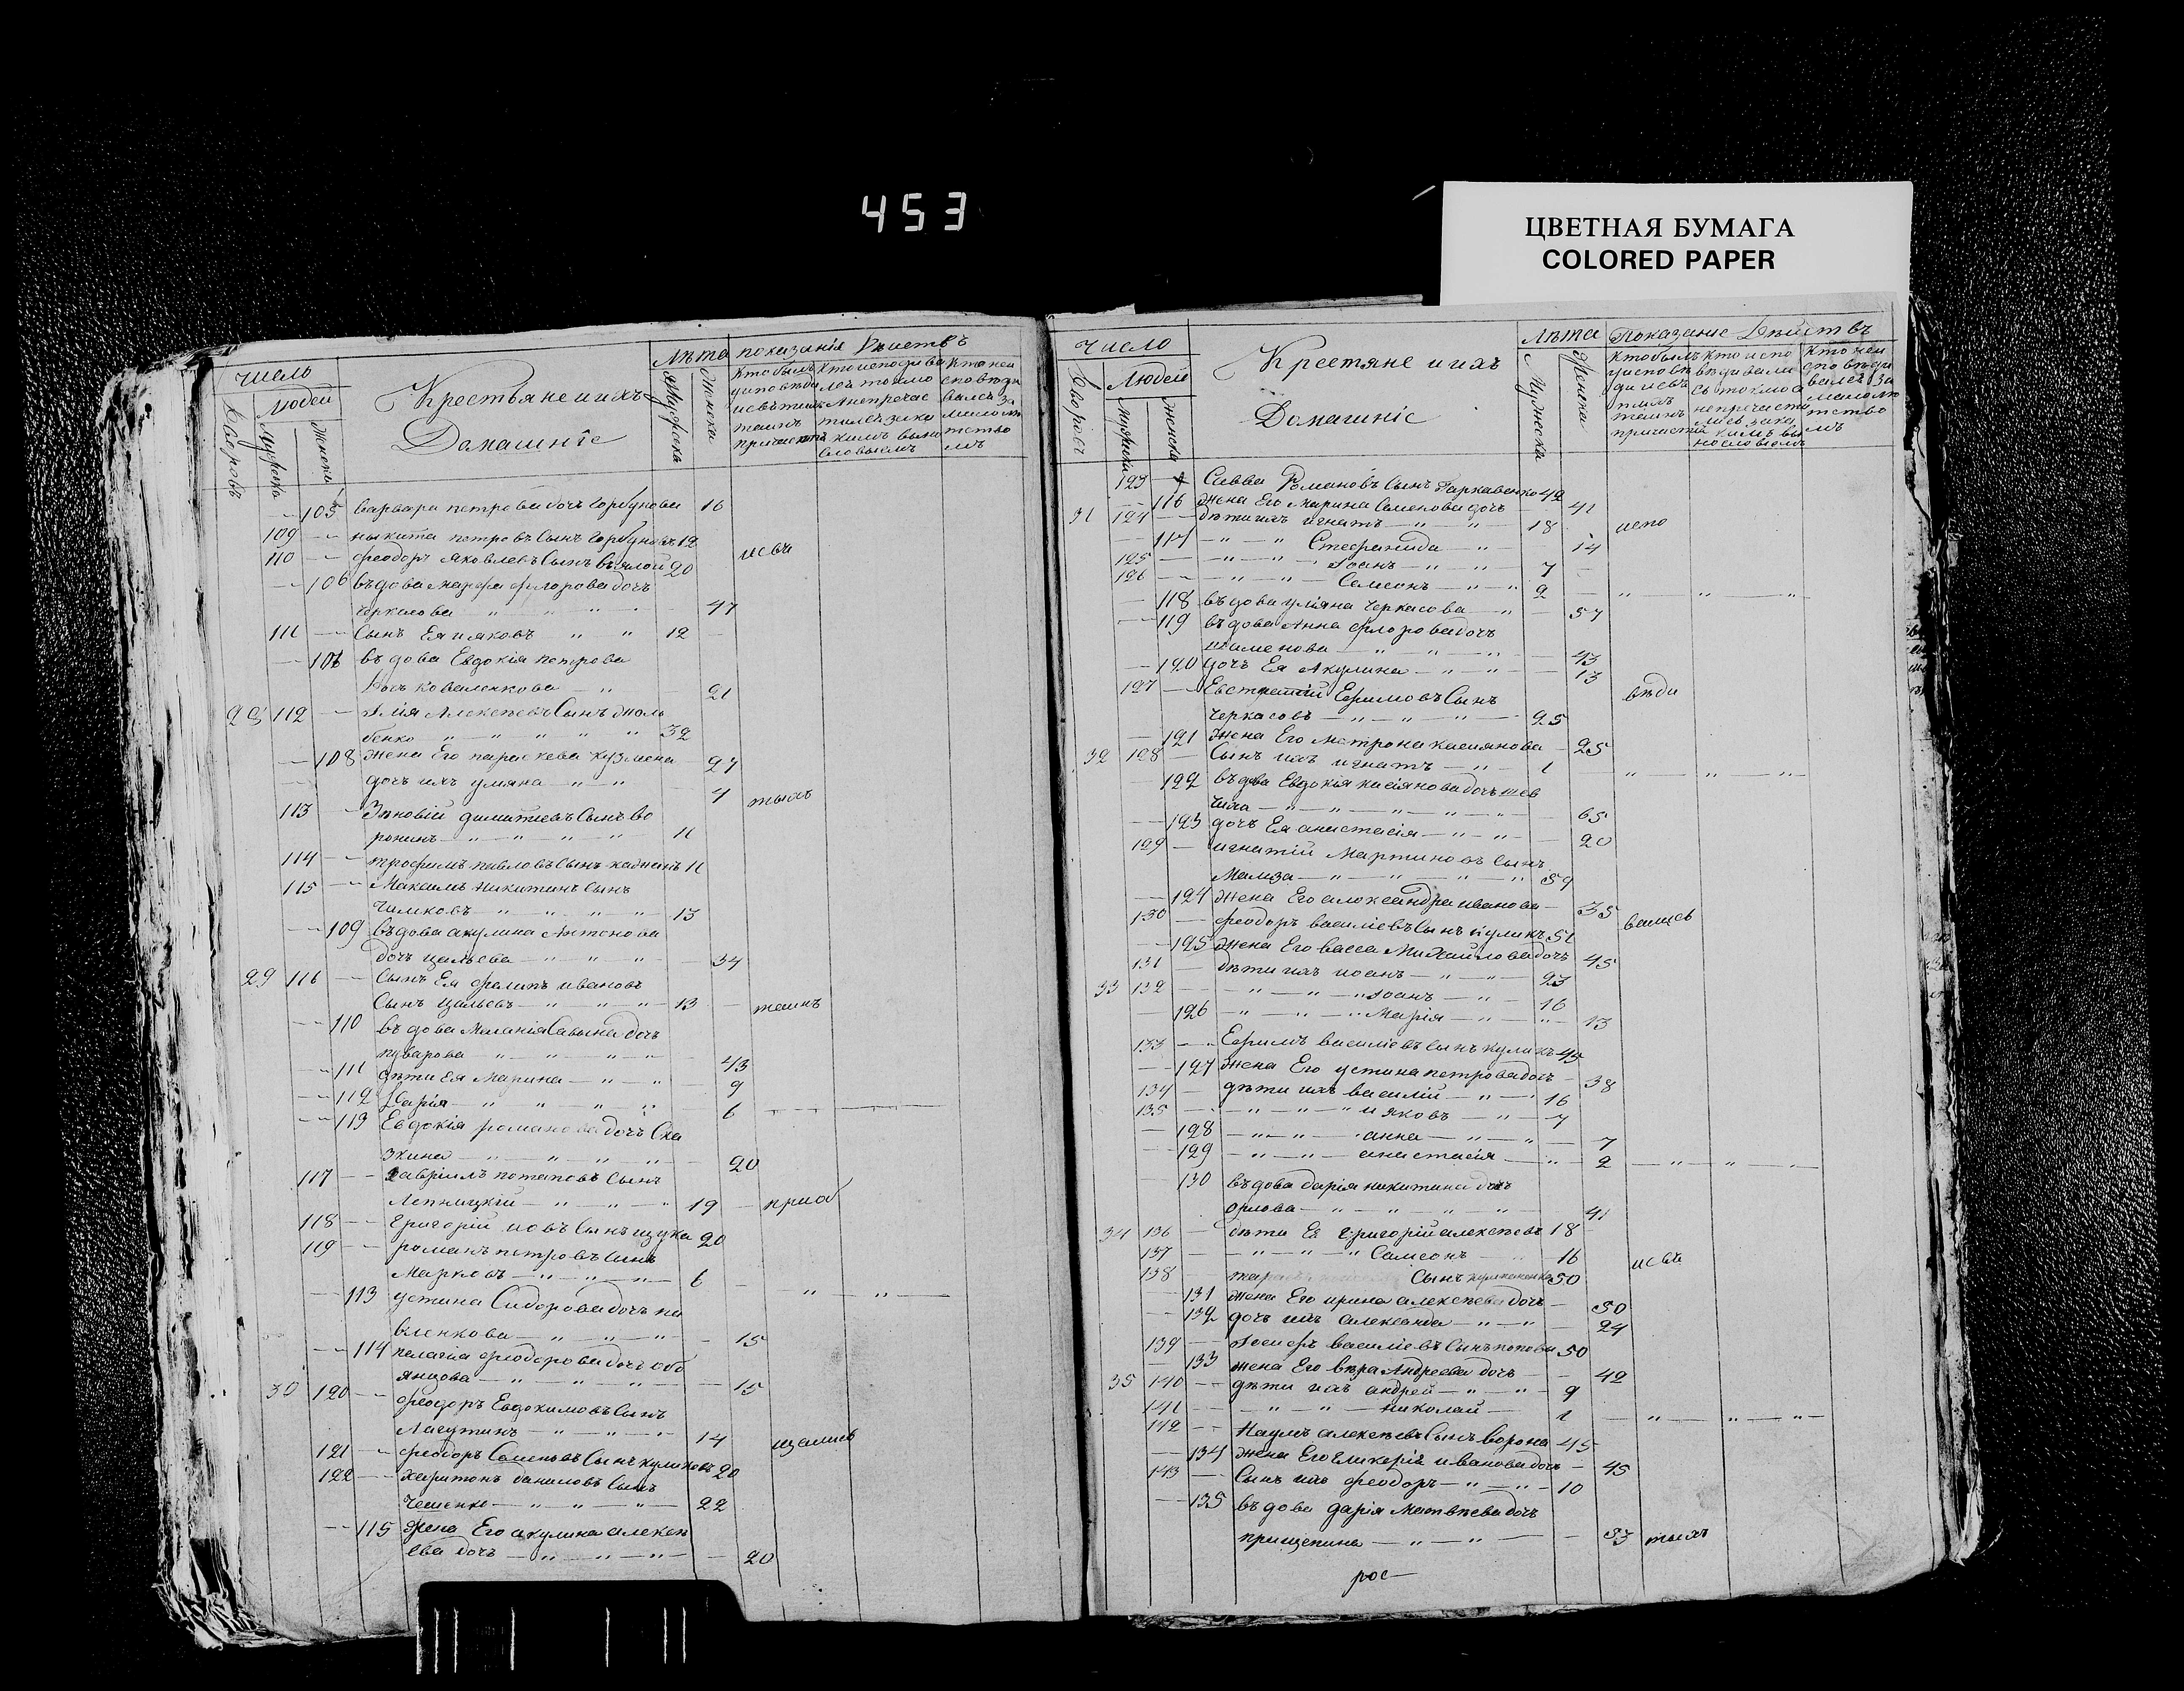 453
ЦВЕТНАЯ БУМАГА
COLORED PAPER
число
людей
Крестьяне и ихъ
Домашнїе
Лѣта
показанїя
105 варвара петрова дочь горбунова 16
109 никита петровъ Сынъ горбуновъ 12
110 феодоръ Яковлевъ Сынъ 20 исвѣ
106 въдова марфа флорова дочь
черкасова 47
111 Сынъ Ея ияковъ 12
107 въдова Евдокія петрова
дочь коваленкова 21
28 112 Илїя Алексѣевъ Сынъ
бенко 32
108 жена Его параскева кузмина 27
дочь ихъ уляна 4 тыхъ
113 Зѣновїй димитиевъ Сынъ во
ронинъ 11
114 трофимъ павловъ Сынъ 11
115 Максимъ никитинъ Сынъ
13
109 въдова акулина Антонова
дочь цальева 34
29 116 Сынъ Ея филипъ ивановъ
Сынъ цальевъ 13 таинъ
110 въдова Миланїя Савына дочь
пуварова 43
111 дѣти Ея Марина 9
112 Дарїя 6
113 Евдокїя романова дочь Ска
зкина 20
117 Гаврїилъ потаповъ Сынъ
Лепницкїй 19 приоб
118 Григорїй иовъ Сынъ щука 20
119 романъ петровъ Сынъ
Марковъ 6
113 устина Сидорова дочь па
вленкова 15
114 пелагїя феодорова дочь обо
янцова 15
30 120 феодоръ Евдокимовъ Сынъ
Лагутинъ 14 щались
121 феодоръ Семеновъ Сынъ куликовъ 20
122 харитонъ даниловъ Сынъ
Чешенко 22
115 жена Его акулина алексѣ
ева дочь 20
Число
Людей
Крестяне и ихъ
Домашнїе
Лѣта
Показанїе
Мужеска
Женска
123 Савва Романовъ Сынъ Гаркавенко 42
116 жена Его Марина Семенова дочь 41
31 124 дѣти ихъ игнатъ 18 испо
117 Стефанида 14
125 Іоанъ 7
126 Самсонъ 2
118 въдова уляна черкасова 57
119 въдова Анна флорова дочь
шаменова 43
120 дочь Ея Акулина 13
127 Евстратїй Ефимовъ Сынъ вѣди
черкасовъ 25
121 жена Его матрона касиянова 25
32 128 Сынъ ихъ игнатъ 1
122 въдова Евдокїя касїянова дочь шев
чиха 65
123 дочь Ея анастасїя 20
129 игнатїй Мартиновъ Сынъ
Мализа 59
124 жена Его александра иванова 35
130 феодоръ василїевъ Сынъ куликъ 51 вались
125 жена Его васса Михаилова дочь 45
131 дѣти ихъ иоанъ 23
33 132 Іоанъ 16
126 Марїя 13
133 Ефимъ василїевъ Сынъ куликъ 45
127 жена Его устина петрова дочь 38
134 дѣти ихъ василїй 16
135 ияковъ 7
128 анна 7
129 анастасїя 2
130 въдова дарїя никитина дочь
орлова 41
34 136 дѣти Ея григорїй алексѣевъ 18
137 Самсонъ 16 исвѣ
138 Сынъ 50
131 жена Его ирина алексѣева дочь 50
132 дочь ихъ александа 24
139 Іосифъ василїевъ Сынъ поповъ 50
133 жена Его вѣра Андреева дочь 42
35 140 дѣти ихъ андрей 9
141 николай 1
142 Наумъ алексѣевъ Сынъ ворона 45
134 жена Его Гликерїя иванова дочь 45
143 Сынъ ихъ феодоръ 10
135 въдова дарїя Матвѣева дочь
прищепина 53 тыхъ
рос